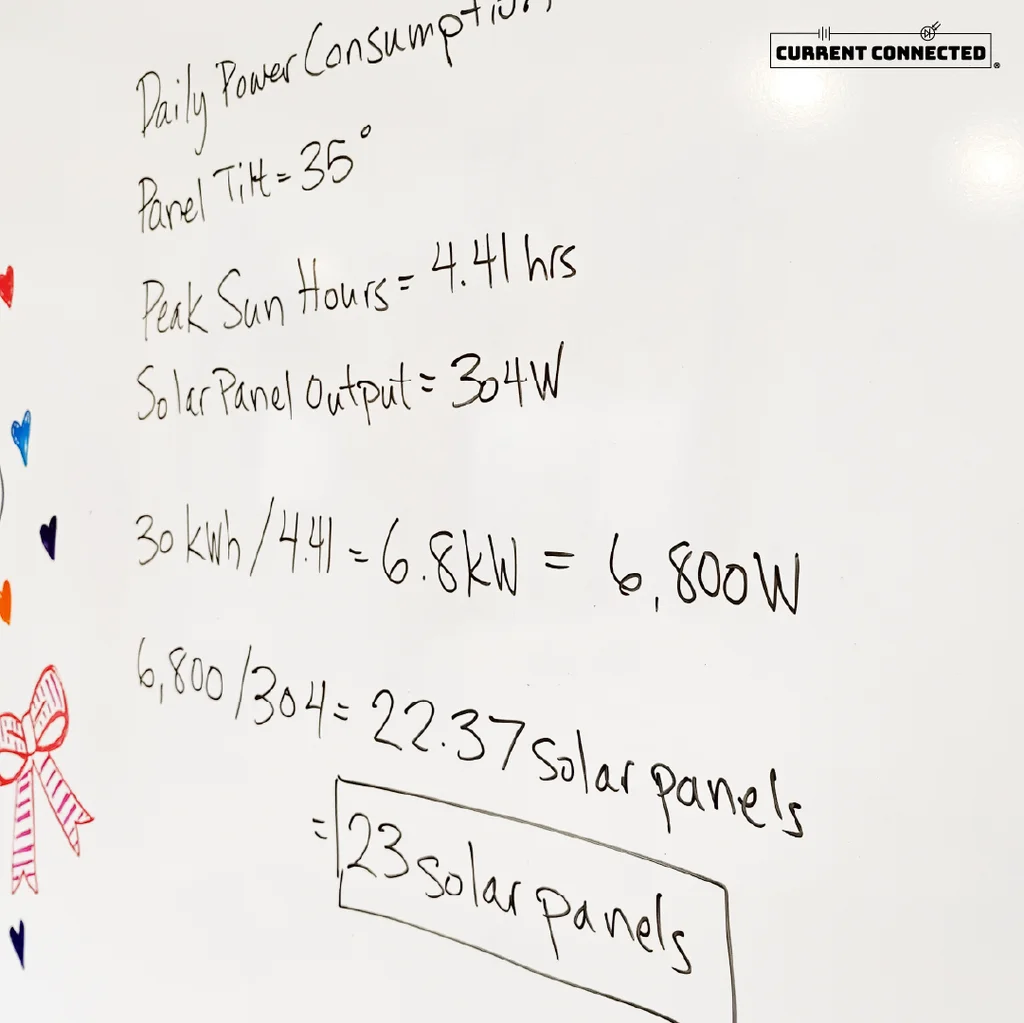 CURRENT CONNECTED®
Daily Power Consumption
Panel Tilt = 35°
Peak Sun Hours = 4.41 hrs
Solar Panel Output = 304W
30 kWh / 4.41 = 6.8kW = 6,800W
6,800/304 = 22.37 Solar panels
= 23 solar panels